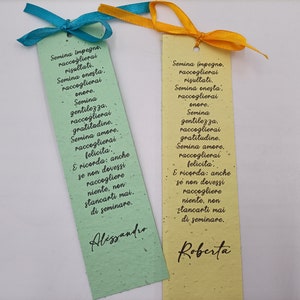 Semina impegno,
raccoglierai
risultati.
Semina onestà,
raccoglierai
onore.
Semina
gentilezza,
raccoglierai
gratitudine.
Semina amore,
raccoglierai
felicità.
E ricorda: anche
se non dovessi
raccogliere
niente, non
stancarti mai
di seminare.
Alessandro
Semina impegno,
raccoglierai
risultati.
Semina onestà,
raccoglierai
onore.
Semina
gentilezza,
raccoglierai
gratitudine.
Semina amore,
raccoglierai
felicità.
E ricorda: anche
se non dovessi
raccogliere
niente, non
stancarti mai
di seminare.
Roberta